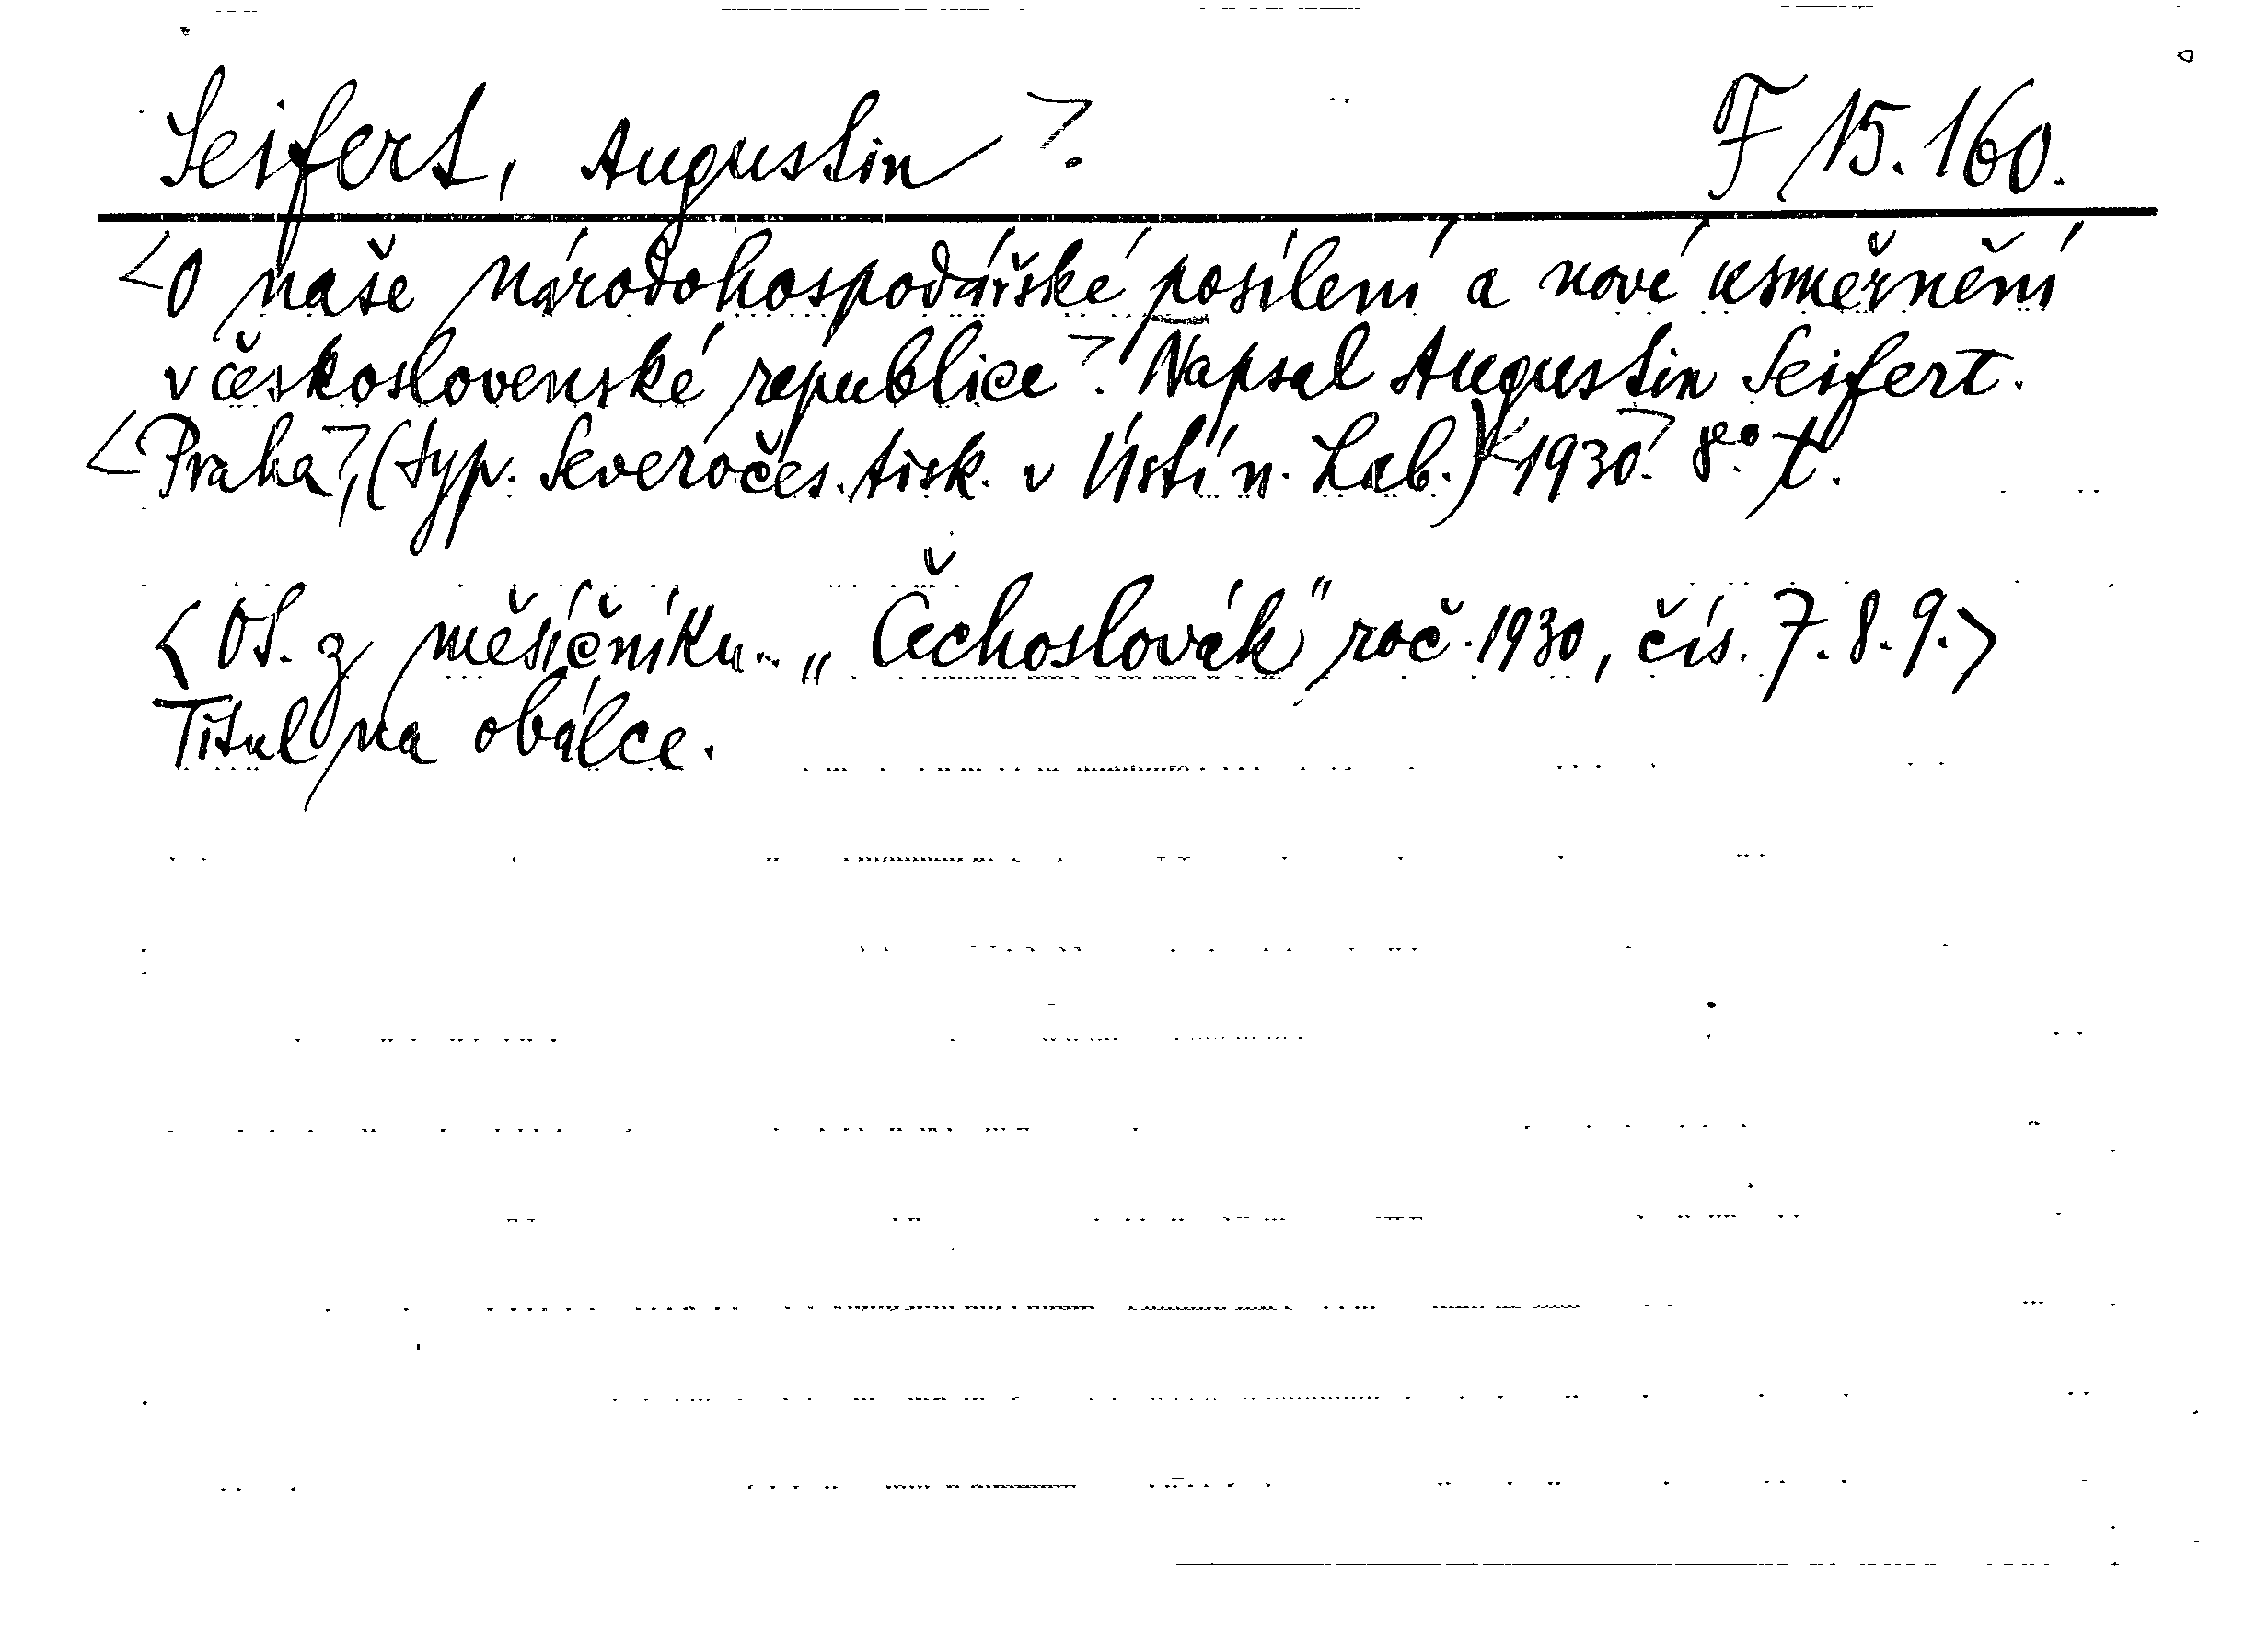 Seifert, Augustin>. F 15.160.
<O naše národohospodářské posílení a nové usměrnění
v československé republice>. Napsal Augustin Seifert.
<Praha>, (typ. Severočes. tisk. v Ústí n. Lab.) <1930>. 8° t.
<Ot. z měsíčníku.. „Čechoslovák" roč. 1930, čís. 7. 8. 9.>
Titul na obálce.